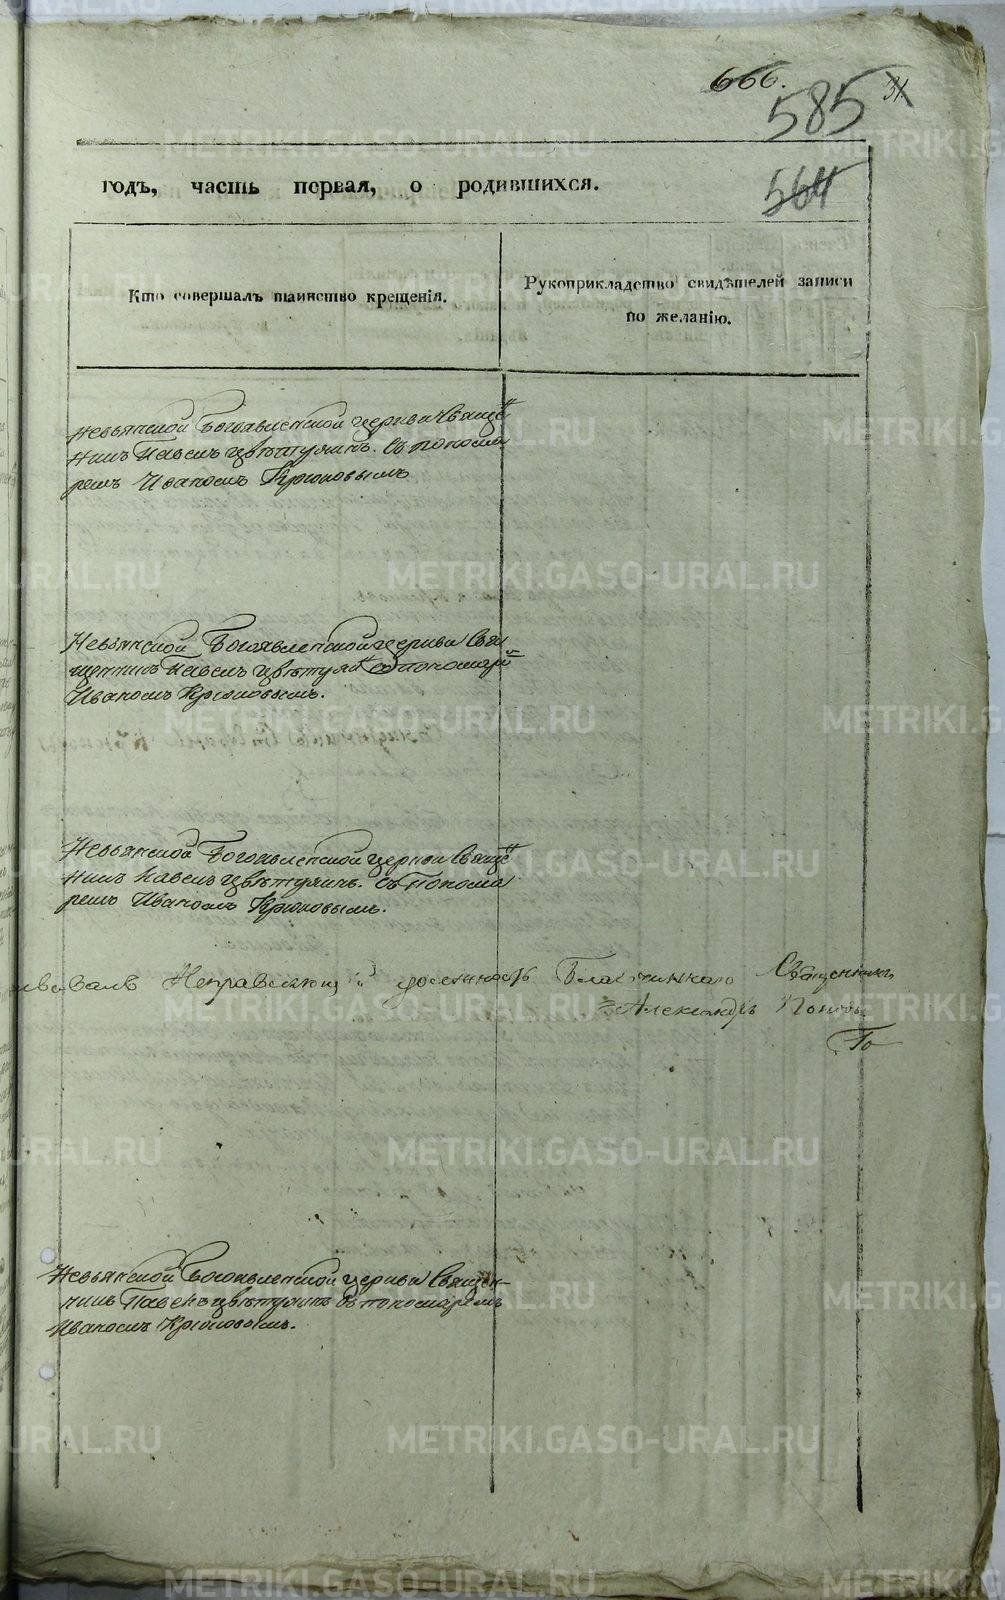 666.
585 31
564
годъ, часть первая, о родившихся.
Кто совершалъ таинство крещенія.
Рукоприкладство свидѣтелей записи
по желанію.
Невьянской Богоявленской церкви Свяще
нникъ Павелъ Цвѣтухинъ. съ понома
ремъ Иваномъ Крюковымъ
Невьянской Богоявленской церкви Свя
щенникъ Павелъ съ пономаре
Иваномъ Крюковымъ.
Невьянской Богоявленской церкви Свяще
нникъ Павелъ Цвѣтухинъ. съ Понома
ремъ Иваномъ Крюковымъ.
Исправляющій должность Благочиннаго Священникъ
Александръ Поповъ
Невьянской Богоявленской церкви Священ-
никъ Павелъ Цвѣтухинъ съ пономаремъ
Иваномъ Крюковымъ.
METRIKI.GASO-URAL.RU